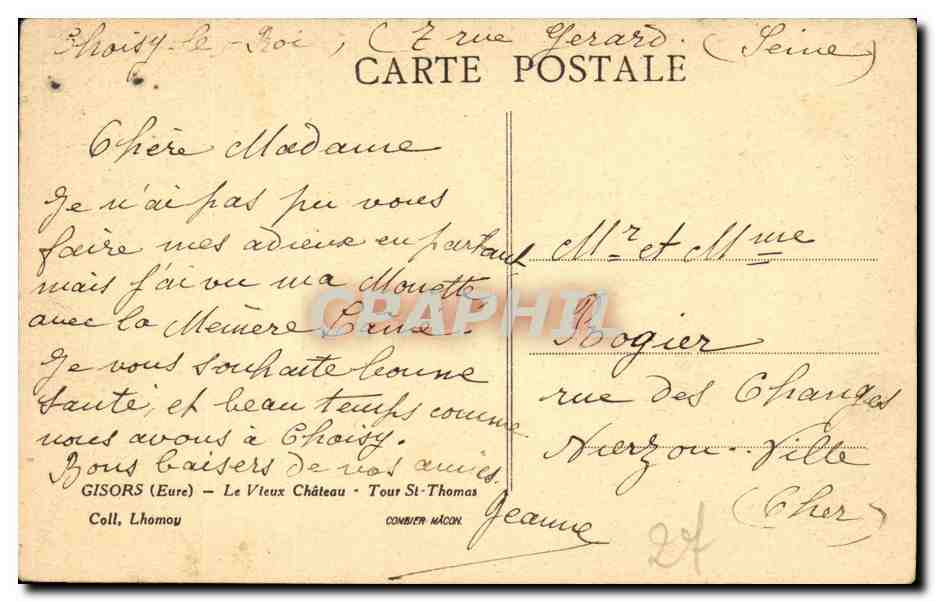 Choisy-le-Roi, (7 rue Gerard. (Seine)
CARTE POSTALE
Chère Madame
Je n'ai pas pu vous
faire mes adieux en partant
mais j'ai vu ma Mouette
avec la Mémère Lainé.
Je vous souhaite bonne
santé, et beau temps comme
nous avons à Choisy.
Bons baisers de vos amies.
Jeanne
Mr et Mme
Rogier
rue des Changes
Vierzon-Ville
(Cher)
GISORS (Eure) - Le Vieux Château - Tour St-Thomas
Coll, Lhomoy
COMBIER MÂCON
27
CPAPHIL